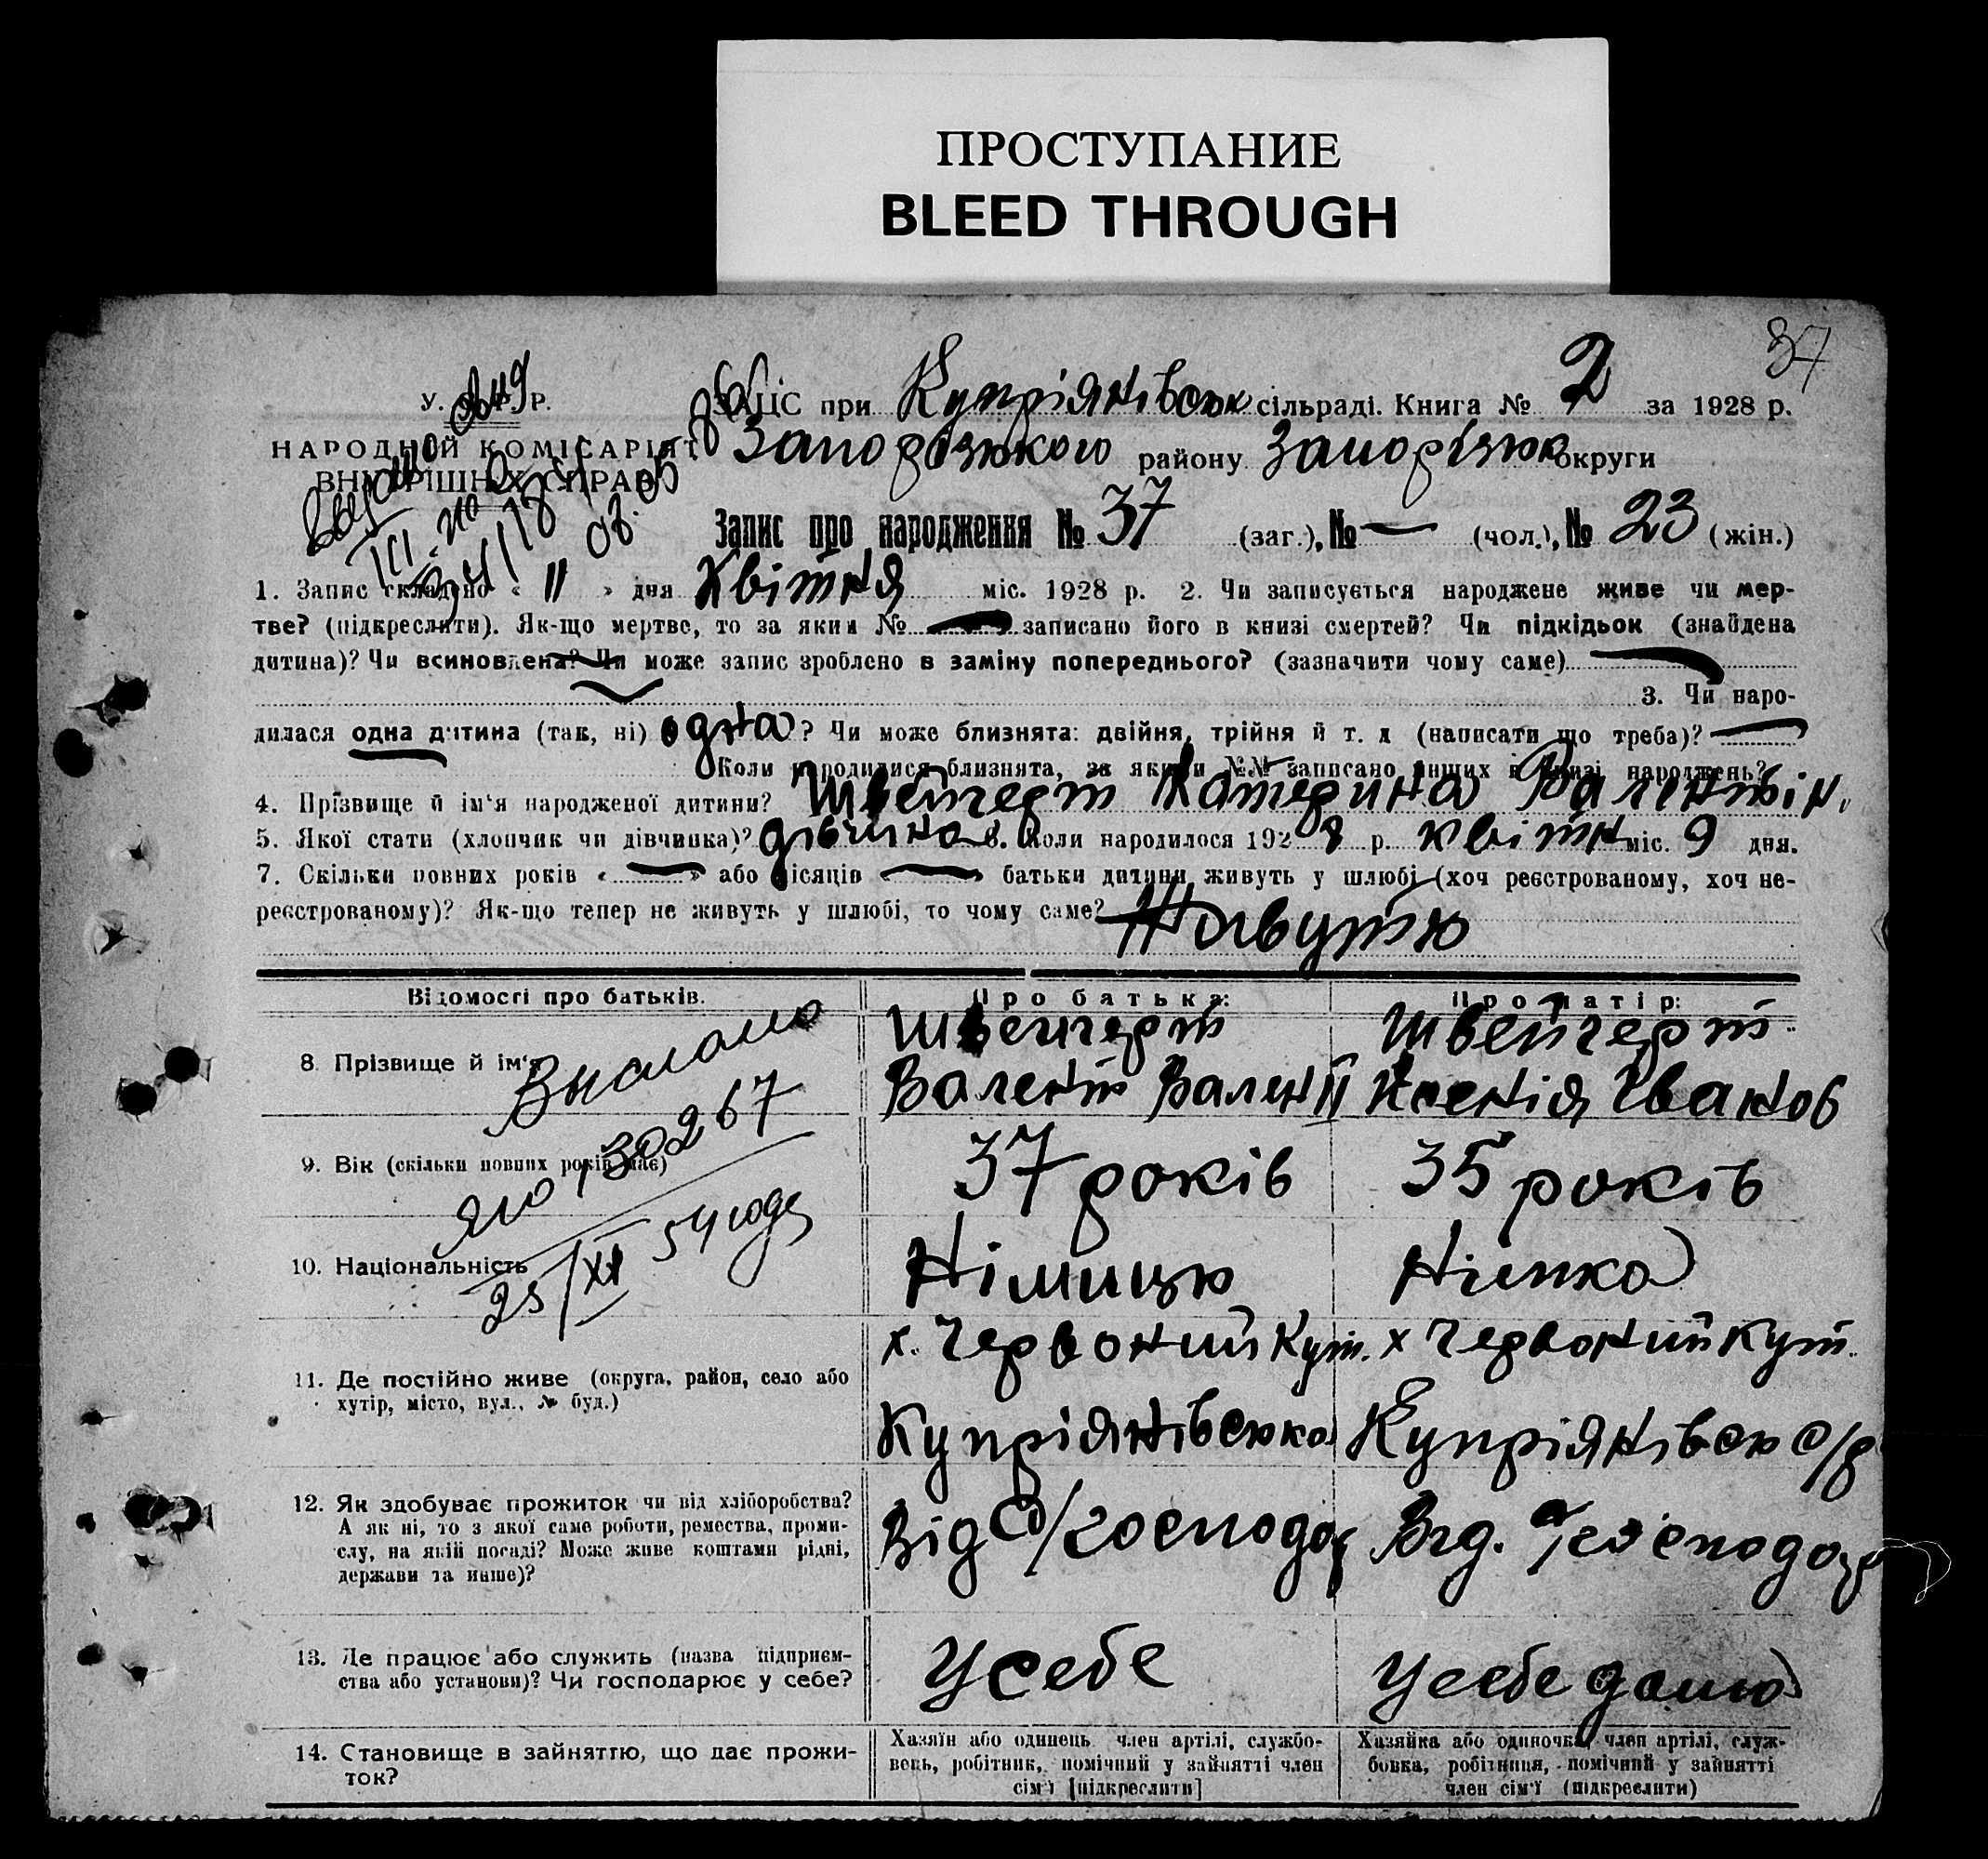 ПРОСТУПАНИЕ
BLEED THROUGH
37
У. С. Р. Р.
НАРОДНІЙ КОМІСАРІЯТ
ВНУТРІШНІХ СПРАВ
ЗАЦС при Купріянівськ сільраді. Книга № 2 за 1928 р.
Запорізького району Запорізьк округи
Запис про народження № 37 (заг.), № — (чол.), № 23 (жін.)
1. Запис складено « 11 » дня Квітня міс. 1928 р. 2. Чи записується народжене живе чи мер-
тве? (підкреслити). Як-що мертве, то за яким № — записано його в книзі смертей? Чи підкідьок (знайдена
дитина)? Чи всиновлена? Чи може запис зроблено в заміну попереднього? (зазначити чому саме) —
3. Чи наро-
дилася одна дитина (так, ні) одна? Чи може близнята: двійня, трійня й т. д (написати що треба)? —
Коли народилися близнята, за якими №№ записано инших в книзі народжень?
4. Прізвище й ім'я народженої дитини? Швейгерт Катерина Валентін.
5. Якої стати (хлопчик чи дівчинка)? дівчина 6. Коли народилося 1928 р. квітн міс. 9 дня.
7. Скільки повних років « — » або місяців « — » батьки дитини живуть у шлюбі (хоч реєстрованому, хоч не-
реєстрованому)? Як-що тепер не живуть у шлюбі, то чому саме? Живуть
Відомості про батьків. Про батька: Про матір:
8. Прізвище й ім'я Швейгерт Швейгерт
Валент Вален Ксенія Іванов
9. Вік (скільки повних років має) 37 років 35 років
10. Національність Німець Німка
25/XI 54 года
х. Червоний Кут. х Червоний Кут.
11. Де постійно живе (округа, район, село або
хутір, місто, вул., № буд.)
Купріянівська Купріянівськ с/р
12. Як здобуває прожиток чи від хліборобства?
А як ні, то з якої саме роботи, ремества, проми-
слу, на якій посаді? Може живе коштами рідні,
держави та инше)?
Від с/господар Від. с/господар
13. Де працює або служить (назва підприєм-
ства або установи)? Чи господарює у себе?
У себе У себе дома
14. Становище в зайняттю, що дає прожи-
ток?
Хазяїн або одинець член артілі, службо-
вець, робітник, помічний у зайнятті член
сім'ї [підкреслити]
Хазяйка або одиночка, член артілі, служ-
бовка, робітниця, помічний у зайнятті
член сім'ї (підкреслити)